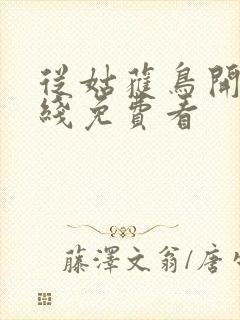 從姑蘿鳥開
綫免費看
藤澤文翁/唐